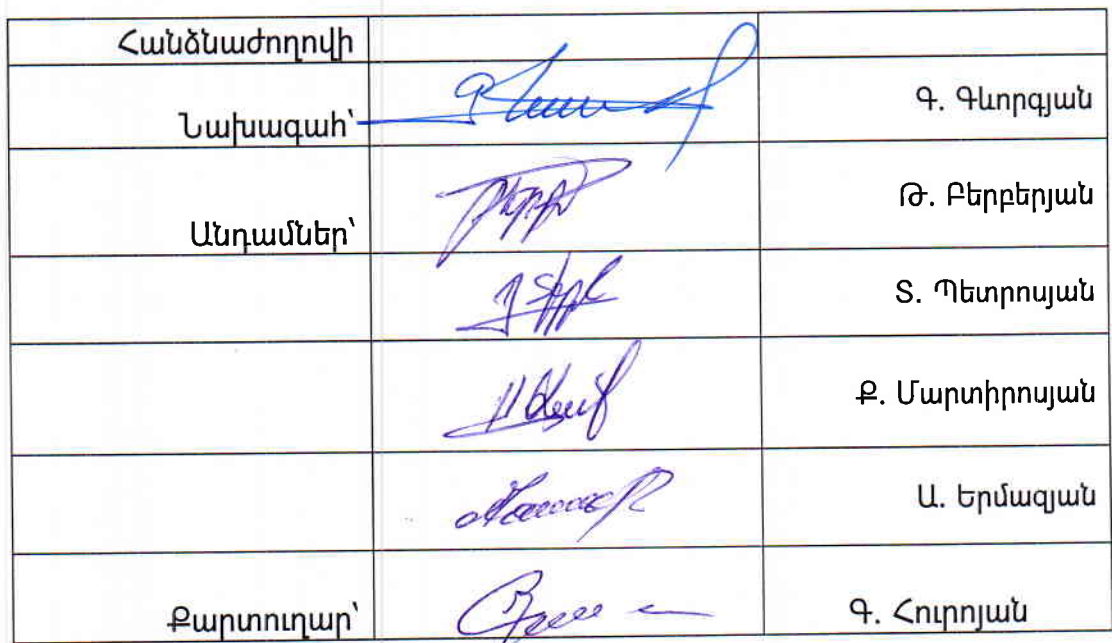 Հանձնաժողովի
Նախագահ՝ Գ. Գևորգյան
Անդամներ՝ Թ. Բերբերյան
Տ. Պետրոսյան
Ք. Մարտիրոսյան
Ա. Երմազյան
Քարտուղար՝ Գ. Հուրոյան